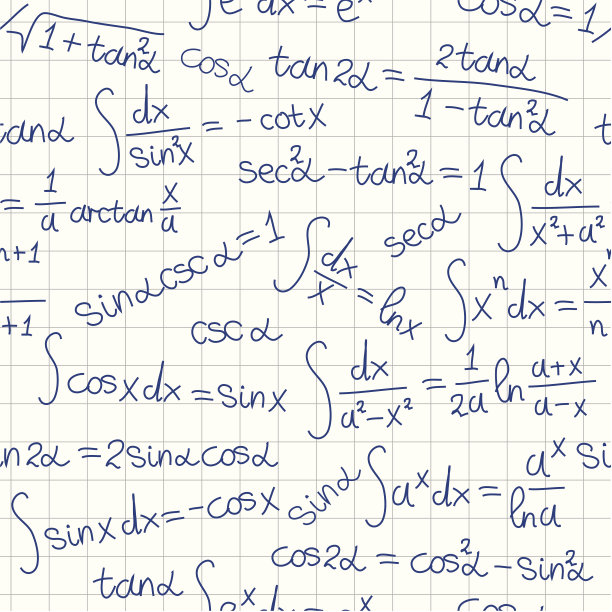 ∫eˣdx = eˣ
cosα = 1/
√(1+tan²α)
cosα
tan2α = 2tanα / (1−tan²α)
tanα
∫dx/sin²x = −cotx
sec²α−tan²α = 1
∫dx/(x²+a²)
= 1/a arctan x/a
secα
n+1
+1
sinαcscα=1
∫dx/x = lnx
∫xⁿdx = xⁿ/n
cscα
∫cosxdx = sinx
∫dx/(a²−x²) = 1/2a ln (a+x)/(a−x)
n2α = 2sinαcosα
sinα
∫aˣdx = aˣ/lna
si
∫sinxdx=−cosx
cos2α = cos²α−sin²α
tanα
∫eˣdx = eˣ
cos